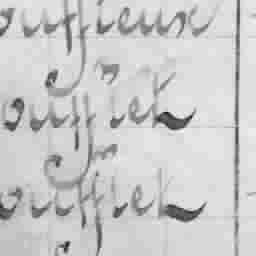 ouffieux
ouffiet
ouffiet